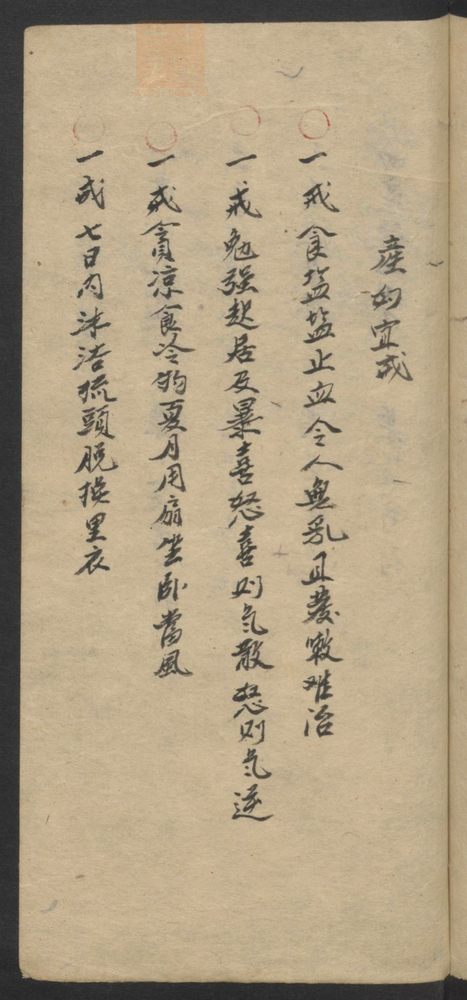 產婦宜戒
一戒食盐盐止血令人無乳且發嗽难治
一戒勉强起居及暴喜怒喜則氣散怒則氣逆
一戒貪凉食冷物夏月用扇坐卧當風
一戒七日内沐浴梳頭脱换里衣